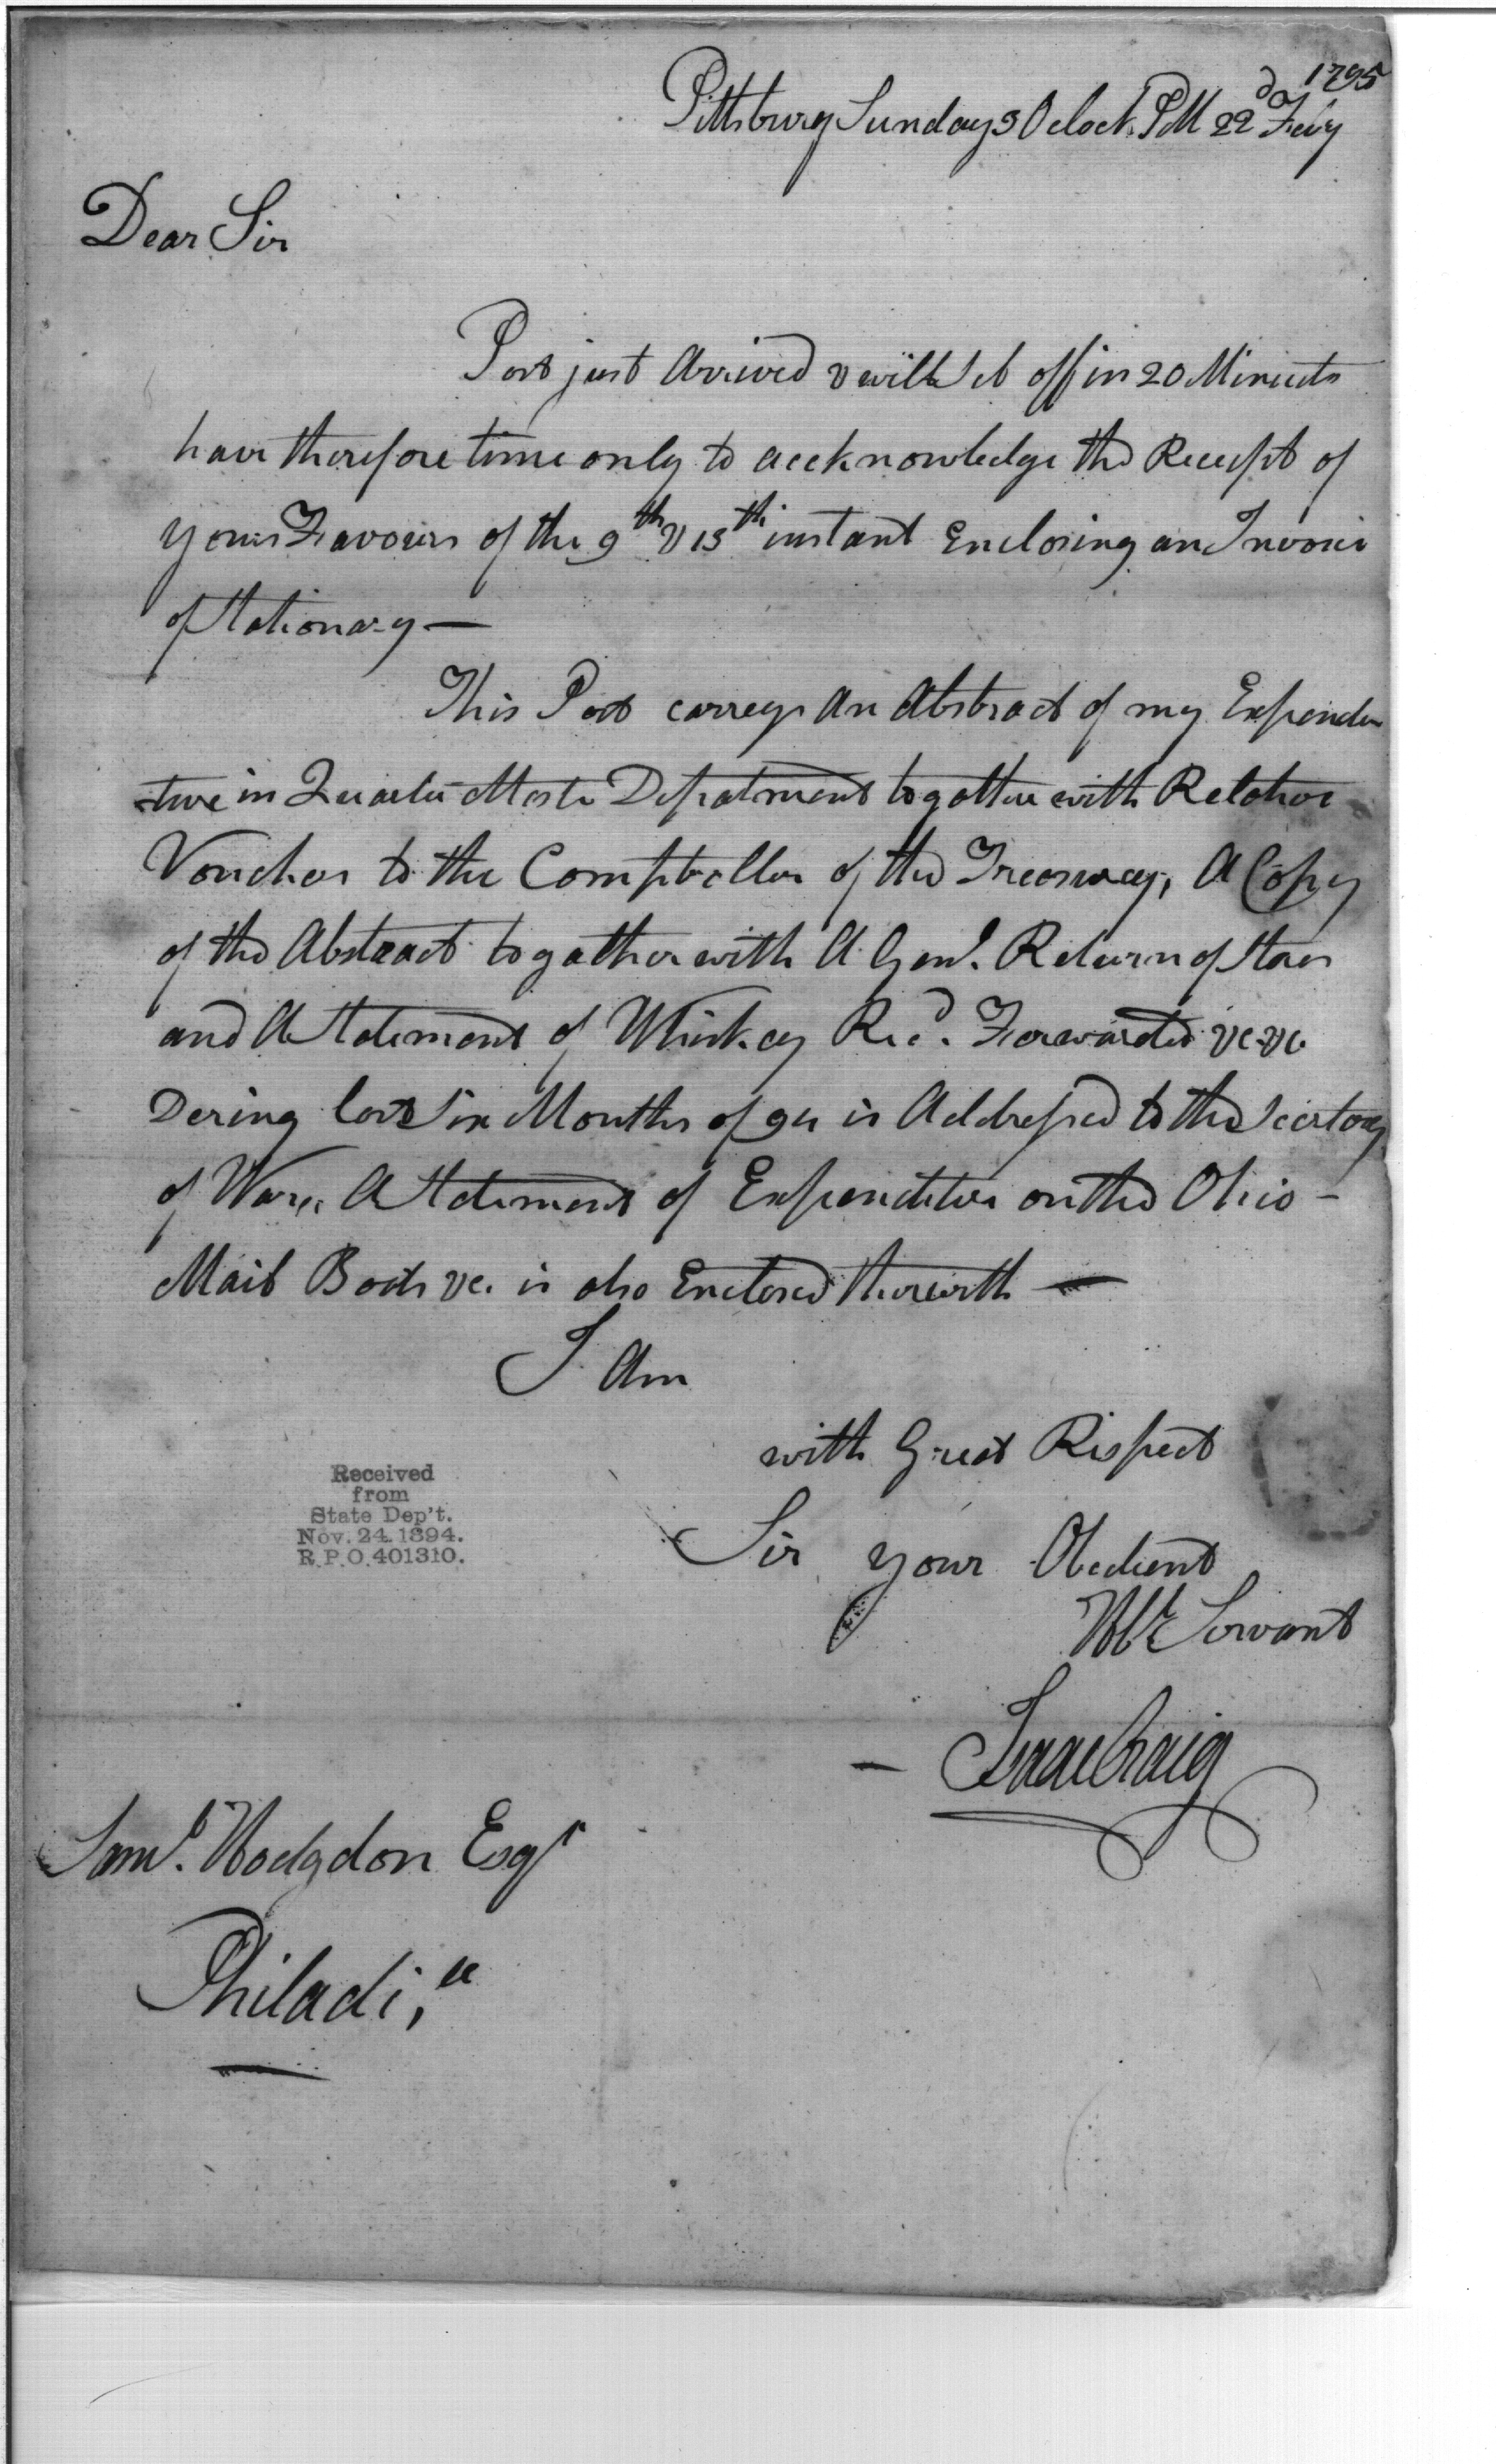 Pittsburg Sunday 3 OClock PM 22d Feby 1795
Dear Sir
Post just Arrived & will Set off in 20 Minuets
have therefore time only to accknowledge the Receipt of
your Favours of the 9th & 13th instant Enclosing an Invoice
of Stationary —
This Post carreys An Abstract of my Expendi
-ture in Quarter Mastr Depatment togather with Relative
Vouchers to the Comptroller of the Treasurey, A Copy
of the Abstract togather with A Genl. Return of Stores
and A Statement of Whiskey Recd. Forwarded &c &c
During last Six Months of 94 is Addressed to the Secretary
of War, A Statement of Expenditure on the Ohio -
Mail Boats &c. is also Enclosed therewith —
I Am
with Great Respect
Sir your Obedient
Hble Servant
— Isaac Craig
Received
from
State Dep't.
Nov. 24. 1894.
R.P.O. 401310.
Saml. Hodgdon Esqr
Philadi,a